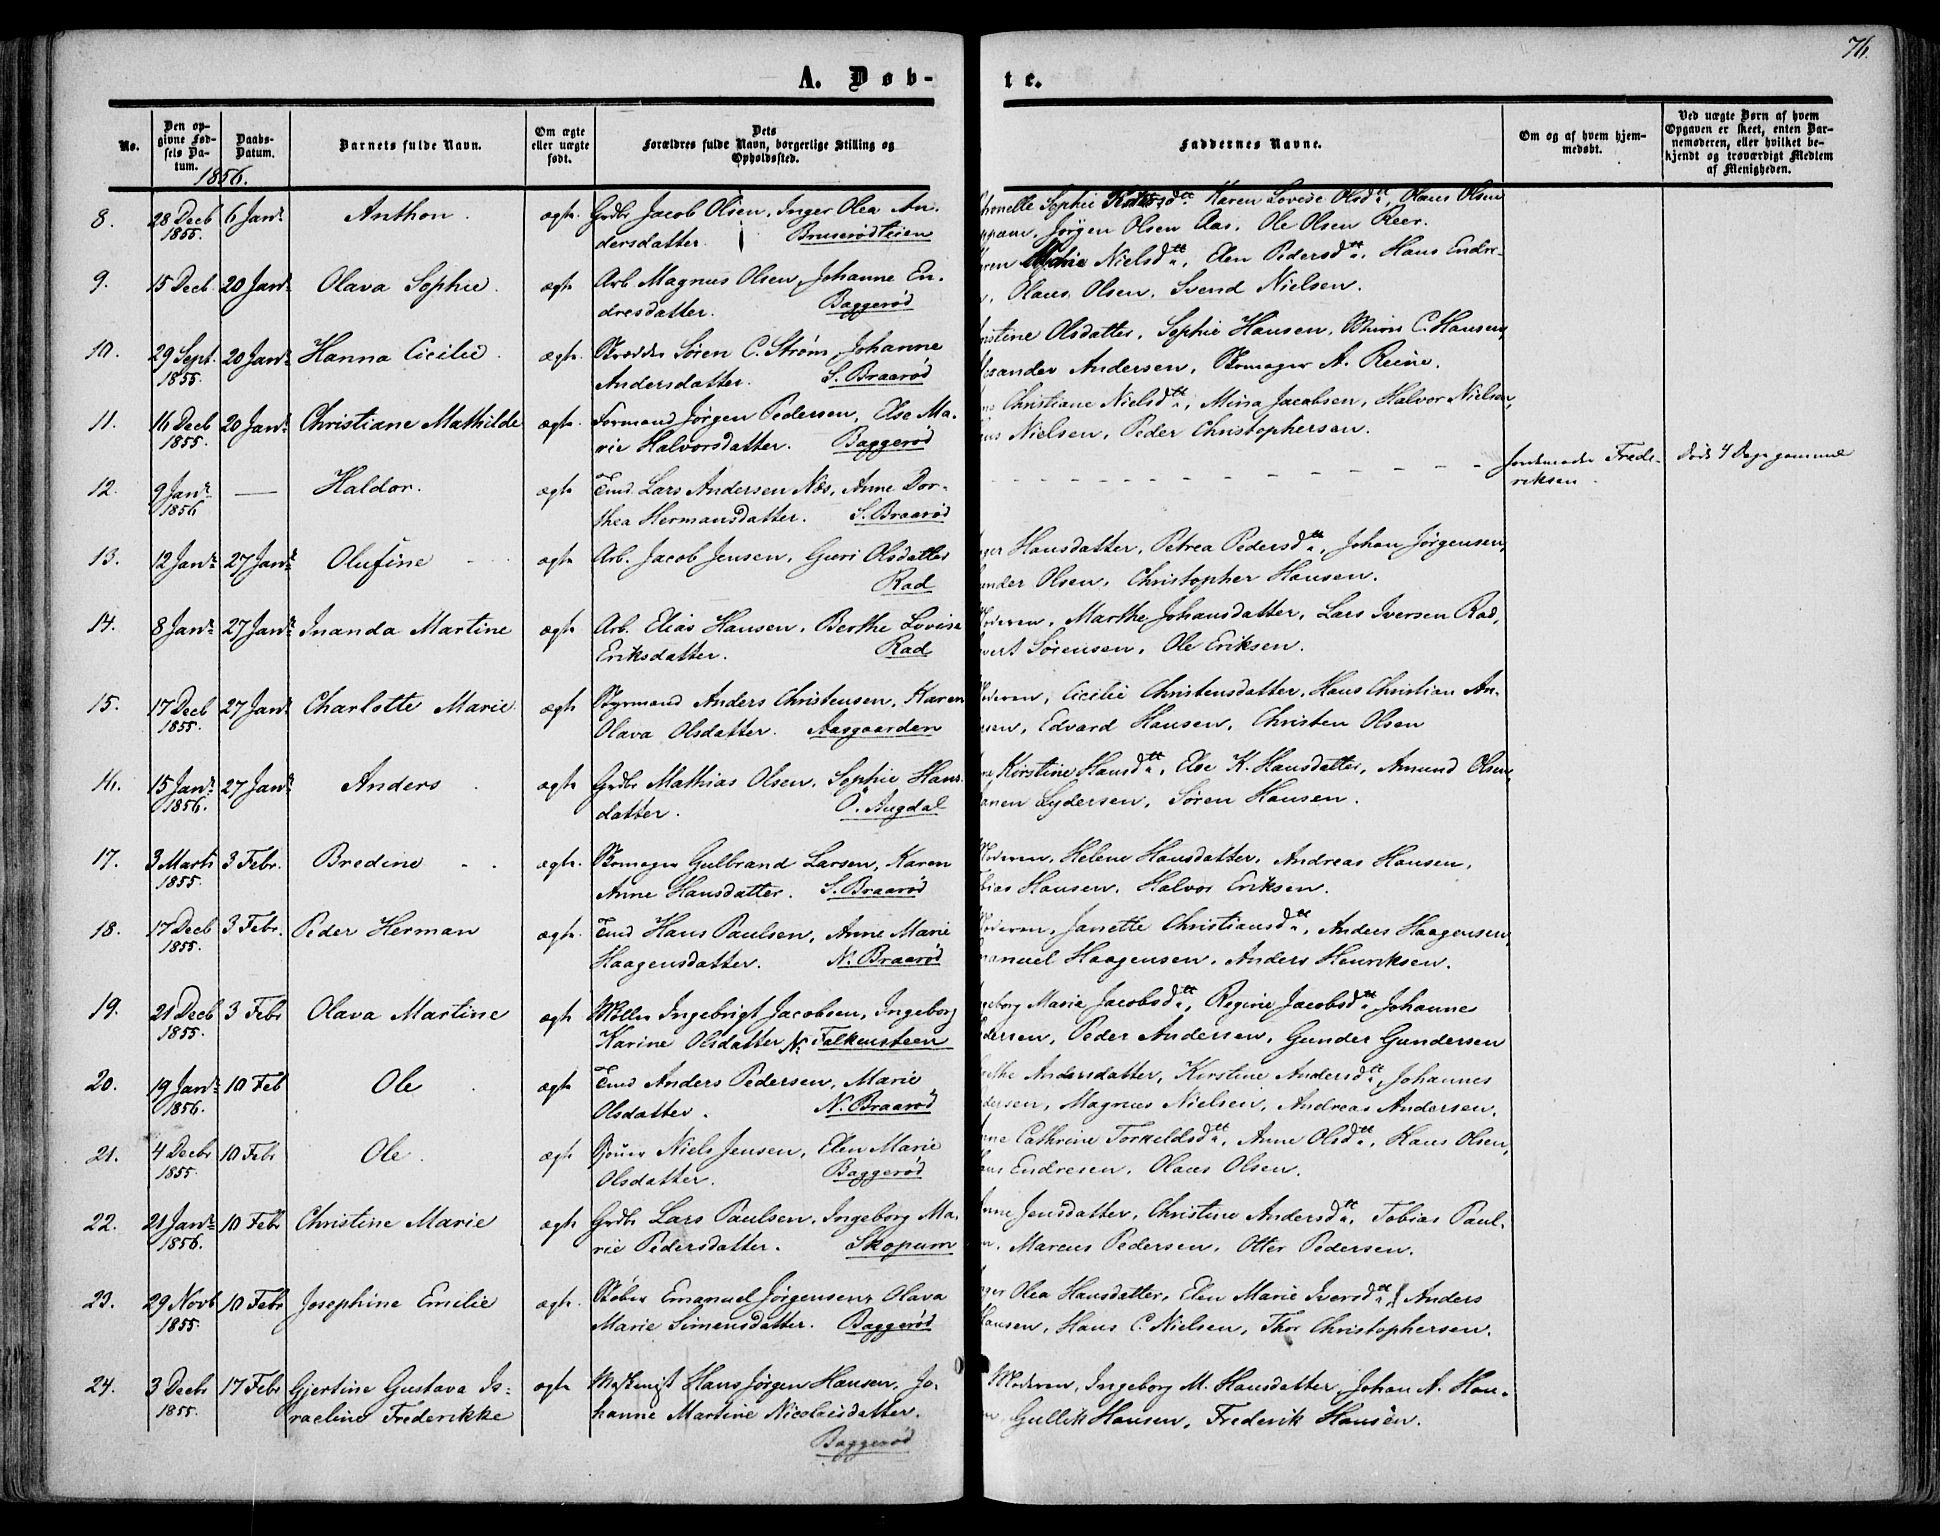 76.
A. Døb-
te.
No.
Den opgivne Fødsels Datum.
Daabs-Datum.
Barnets fulde Navn.
Om ægte eller uægte født.
Dets Forældres fulde Navn, borgerlige Stilling og Opholdssted.
Faddernes Navne.
Om og af hvem hjemmedøbt.
Ved uægte Børn af hvem Opgaven er skeet, enten Barnemoderen, eller hvilket bekjendt og troværdigt Medlem af Menigheden.
1856.
8. 28 Decb 1855. 6 Janr Anthon. ægte Grdbr Jacob Olsen, Inger Olea An-
dersdatter. Bruserødteien
Sophie Karen Lovise Olsdtr, Olaus Olsen
Jørgen Olsen Aas, Ole Olsen Reer.
9. 15 Decb 20 Janr Olava Sophie. ægte Arb Magnus Olsen, Johanne En-
dresdatter. Baggerød
Nielsdtr, Elen Pedersdtr, Hans Endre-
Olaus Olsen, Svend Nielsen.
10. 29 Sept. 1855. 20 Janr Hanna Cicilie. ægte Skrædder Søren C. Strøm, Johanne
Andersdatter. S. Braarød
Olsdatter, Sophie Hansen, C. Hansen,
Andersen, Skomager A. Reine.
11. 16 Decb 1855. 20 Janr Christiane Mathilde ægte Formand Jørgen Pedersen, Else Ma-
rie Halvorsdatter. Baggerød
Christiane Nielsdtr, Mina Jacobsen, Halvor Nielsen,
Nielsen, Peder Christophersen.
12. 9 Janr 1856 — Haldor. ægte Tmd Lars Andersen Næs, Anne Dor-
thea Hermansdatter. S. Braarød
Jordemoder Frede-
riksen.
Død 4 Dage gammel
13. 12 Janr 27 Janr Olufine ægte Arb. Jacob Jensen, Guri Olsdatter
Rad
Hansdatter, Petrea Pedersdtr, Johan Jørgensen,
Olsen, Christopher Hansen.
14. 8 Janr 27 Janr Inanda Martine ægte Arb. Elias Hansen, Berthe Lovise
Eriksdatter. Rad
Moderen, Marthe Johansdatter, Lars Iversen Rad,
Sørensen, Ole Eriksen.
15. 17 Decb 1855. 27 Janr Charlotte Marie. ægte Styrmand Anders Christensen, Karen
Olava Olsdatter. Aasgaarden
Moderen, Cicilie Christensdatter, Hans Christian An-
Edvard Hansen, Christen Olsen
16. 15 Janr 1856. 27 Janr Anders ægte Grdbr Mathias Olsen, Sophie Hans-
datter. O. Augdal
Kirstine Hansdtr, Else K. Hansdatter, Amund Olsen,
Lydersen, Søren Hansen.
17. 3 Marts 1855. 3 Febr. Bredine ægte. Skomager Gulbrand Larsen, Karen
Anne Hansdatter. S. Braarød
Moderen, Helene Hansdatter, Andreas Hansen,
Hansen, Halvor Eriksen.
18. 17 Decb 1855. 3 Febr. Peder Herman ægte. Tmd Hans Paulsen, Anne Marie
Haagensdatter. N. Braarød
Moderen, Janette Christiansdtr, Anders Haagensen,
Haagensen, Anders Henriksen.
19. 21 Decb 1855. 3 Febr Olava Martine ægte Møller Ingebrigt Jacobsen, Ingeborg
Karine Olsdatter N. Falkensteen
Marie Jacobsdtr, Regine Jacobsdtr Johanne
Peder Andersen, Gunder Gundersen
20. 19 Janr 1856. 10 Feb Ole ægte Tmd Anders Pedersen, Marie
Olsdatter. N. Braarød
Andersdatter, Kirstine Andersdtr, Johannes
Magnus Nielsen, Andreas Andersen.
21. 4 Decbr 1855. 10 Febr Ole. ægte Niels Jensen, Elen Marie
Olsdatter. Baggerød
Cathrine Torkeldsdtr, Anne Olsdtr, Hans Olsen,
Endresen, Olaus Olsen.
22. 21 Janr 1856. 10 Febr Christine Marie ægte Grdbr Lars Paulsen, Ingeborg Ma-
rie Pedersdatter. Skopum
Jensdatter, Christine Andersdtr, Tobias Paul-
Marcus Pedersen, Otter Pedersen.
23. 29 Novb 1855. 10 Febr Josephine Emilie ægte. Støber Emanuel Jørgensen, Olava
Marie Simensdatter. Baggerød
Olea Hansdatter, Elen Marie Iversdtr, Anders
Hansen, Hans C. Nielsen, Thor Christophersen.
24. 3 Decbr 1855. 17 Febr Gjertine Gustava Is-
raeline Frederikke ægte Maskenist Hans Jørgen Hansen, Jo-
hanne Martine Nicolaisdatter.
Baggerød
Moderen, Ingeborg M. Hansdatter, Johan A. Han-
Gullik Hansen, Frederik Hansen.